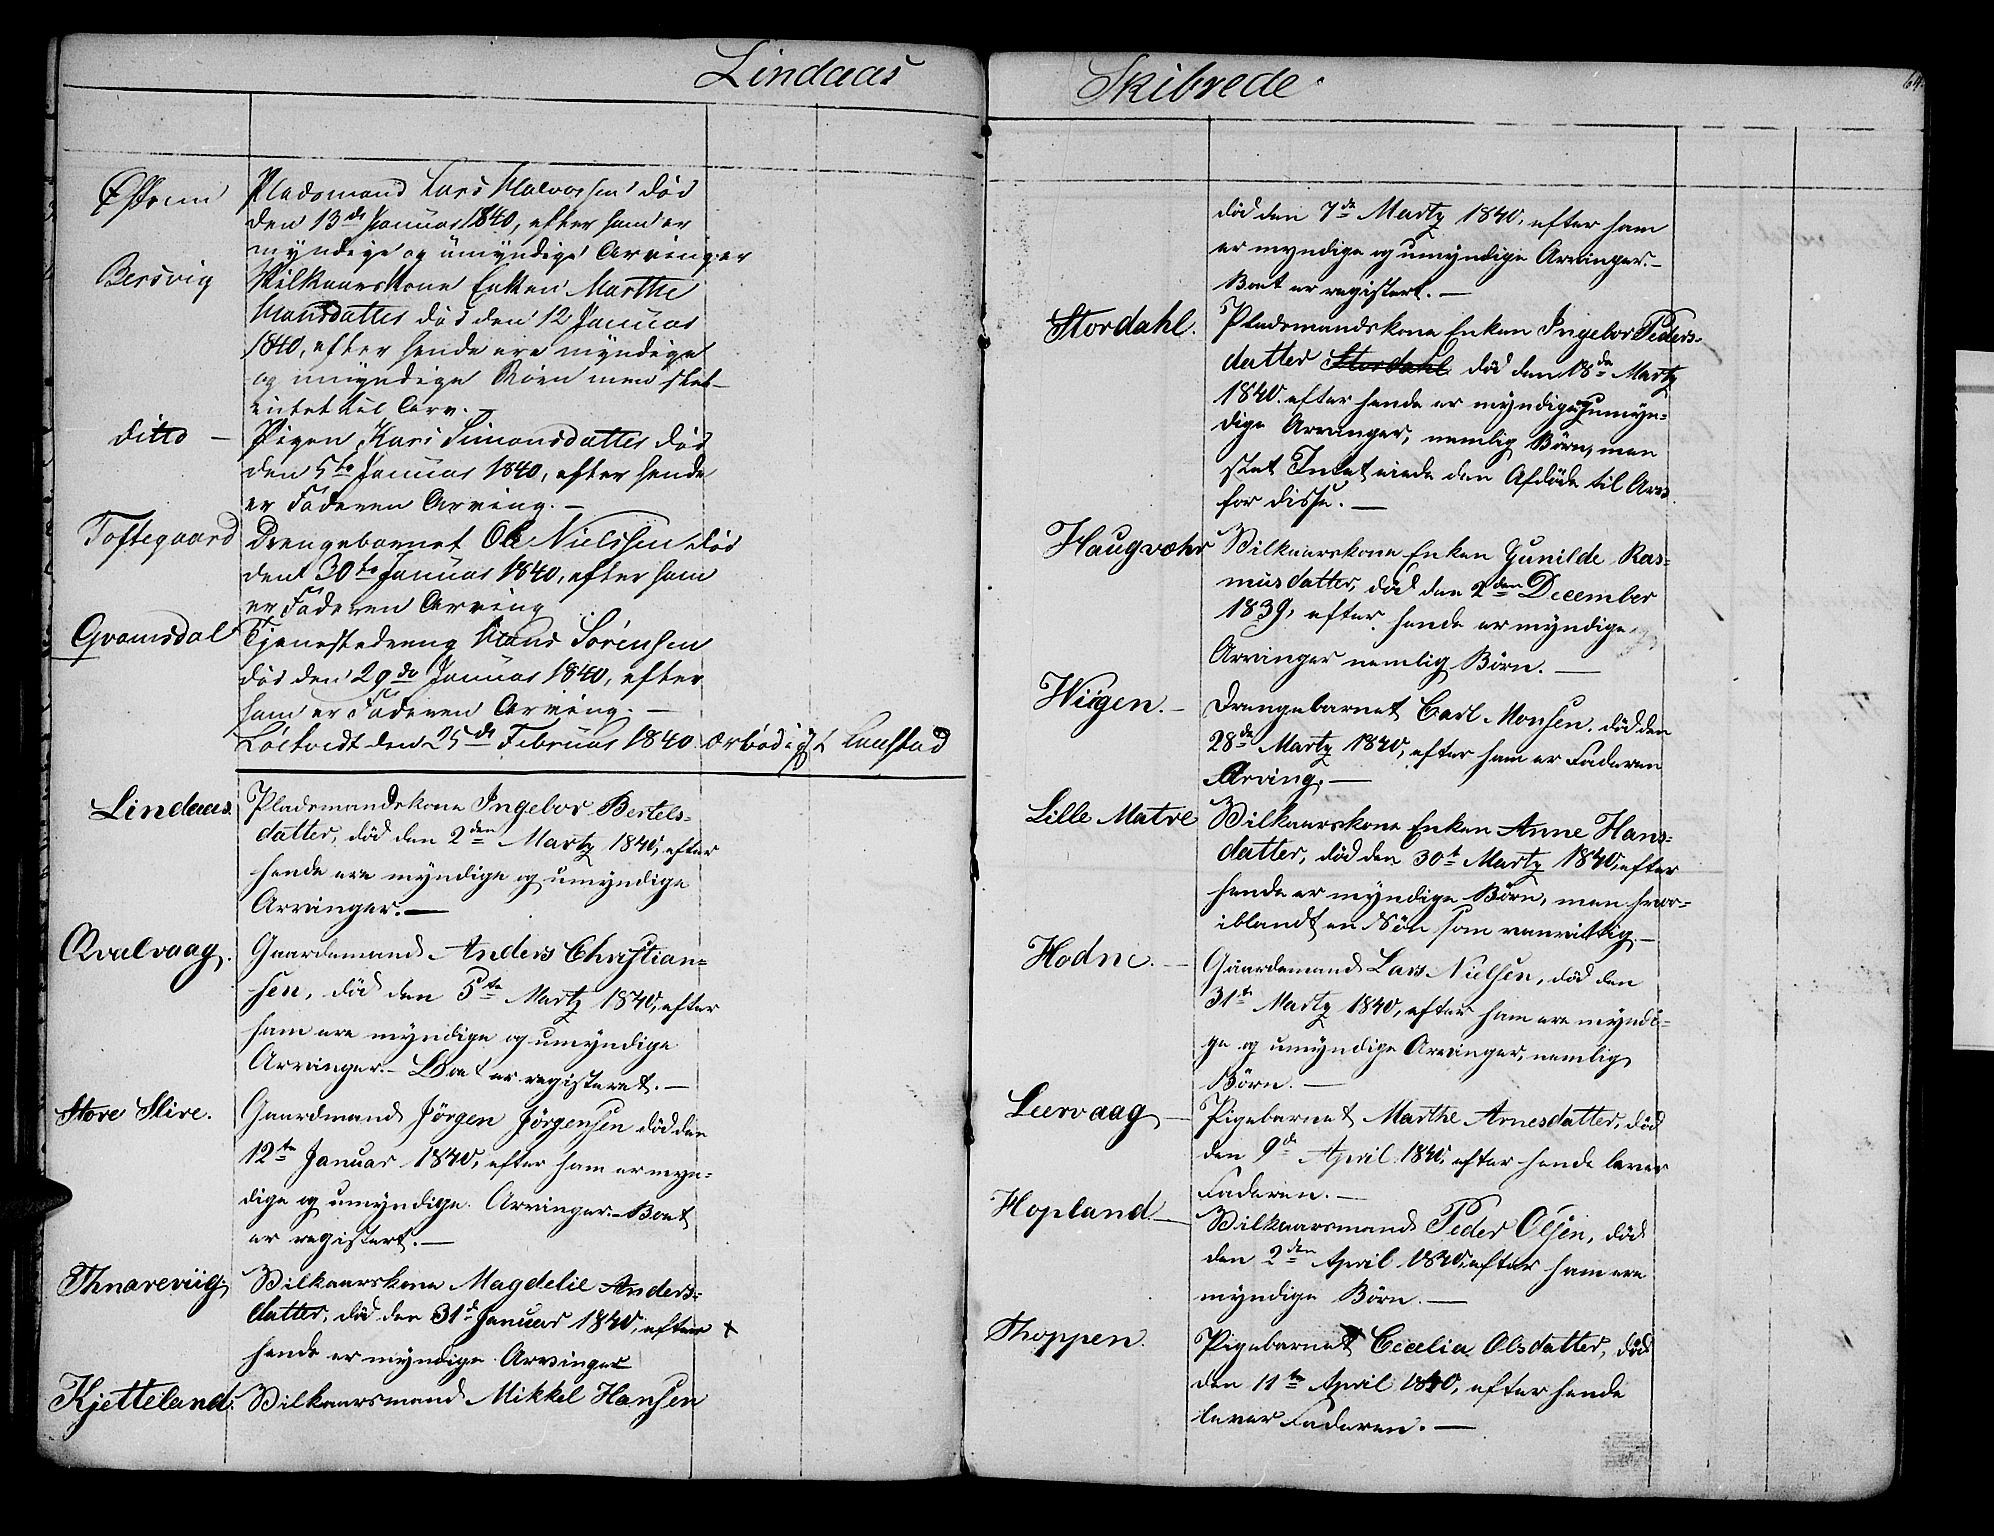 Lindaas Skibrede.
64.
Pladsmand Lars Halvorsen død
den 13de Januar 1840, efter ham er
myndige og umyndige Arvinger
Bersvig Vilkaarskone Enken Marthe
Hansdatter død den 12 Januar
1840, efter hende ere myndige
og umyndige Børn men slet
intet til Arv. —
ditto — Pigen Kari Simonsdatter død
den 5te Januar 1840, efter hende
er Faderen Arving. —
Toftegaard Drengebarnet Ole Nielssen død
den 30te Januar 1840, efter ham
er Faderen Arving
Qvamsdal Tjenestedreng Hans Sörensen
død den 29de Januar 1840, efter
ham er Faderen Arving. —
den 25de Februar 1840. ærbødigst
Lindaas. Pladsmandskone Ingebor Bertels=
datter, død den 2den Martz 1840, efter
hende ere myndige og umyndige
Arvinger. —
Qvalvaag. Gaardmand Anders Christian=
sen, död den 5te Martz 1840, efter
ham ere myndige og umyndige
Arvinger. — Boet er registeret. —
Store Slire. Gaardmand Jörgen Jörgensen död den
12te Januar 1840, efter ham er myn=
dige og umyndige Arvinger. — Boet
er registert. —
Thnareviig Vilkaarskone Magdelie Anders=
datter, död den 31de Januar 1840, efter +
hende er myndige Arvinger
Kjetteland. Vilkaarsmand Mikkel Hansen
död den 7de Martz 1840, efter ham
er myndige og umyndige Arvinger. —
Boet er registert. —
Stordahl. Pladsmandskone Enken Ingebor Peders=
datter Stordahl död den 18de Martz
1840. efter hende er myndige og umyn=
dige Arvinger, nemlig Börn, men
slet Intet eiede den Afdöde til Arv
for disse. —
Haugvæhr Vilkaarskone Enken Gunilde Ras=
musdatter, död den 2den December
1839, efter hende er myndige
Arvinger nemlig Börn. —
Wiigen. — Drengebarnet Carl Monsen, död den
28de Martz 1840, efter ham er Faderen
Arving. —
Lille Matre Vilkaarskone Enken Anne Hans=
datter, död den 30te Martz 1840, efter
hende er myndige Börn, men hvor=
iblandt en Sön som vanvittig. —
Hodne. — Gaardmand Lars Nielsen, död den
31te Martz 1840, efter ham ere myndi=
ge og umyndige Arvinger, nemlig
Börn. —
Leervaag — Pigebarnet Marthe Arnesdatter, död
den 9de April 1840, efter hende lever
Faderen. —
Hopland. — Vilkaarsmand Peder Olsen, död
den 2den April 1840, efter ham ere
myndige Börn. —
Thoppen. Pigebarnet Cecelia Olsdatter, död
den 11te April 1840, efter hende
lever Faderen. —